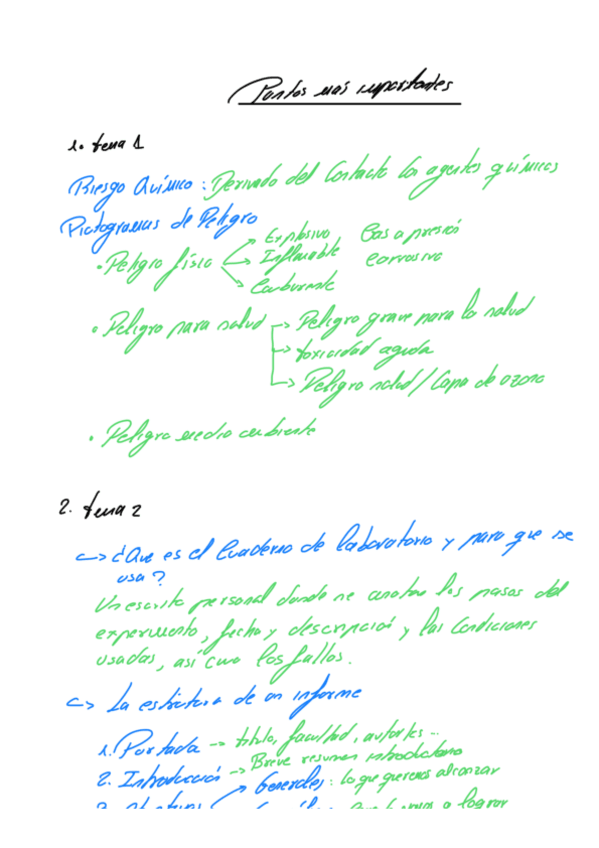 Puntos más importantes
1. tema 1
Riesgo Químico : Derivado del Contacto Con agentes químicos
Pictogramas de Peligro
• Peligro físico → Explosivo, Gas a presión
→ Inflamable Corrosivo
→ Carburante
• Peligro para salud → Peligro grave para la salud
→ toxicidad aguda
→ Peligro salud / Capa de ozono
• Peligro medio ambiente
2. tema 2
→ ¿Que es el Cuaderno de laboratorio y para que se
usa?
Un escrito personal donde se anotan los pasos del
experimento, fecha y descripción y las Condiciones
usadas, así como los fallos.
→ La estructura de un informe
1. Portada → titulo, facultad, autor/es...
2. Introducción → Breve resumen introductorio
Generales : lo que queremos alcanzar